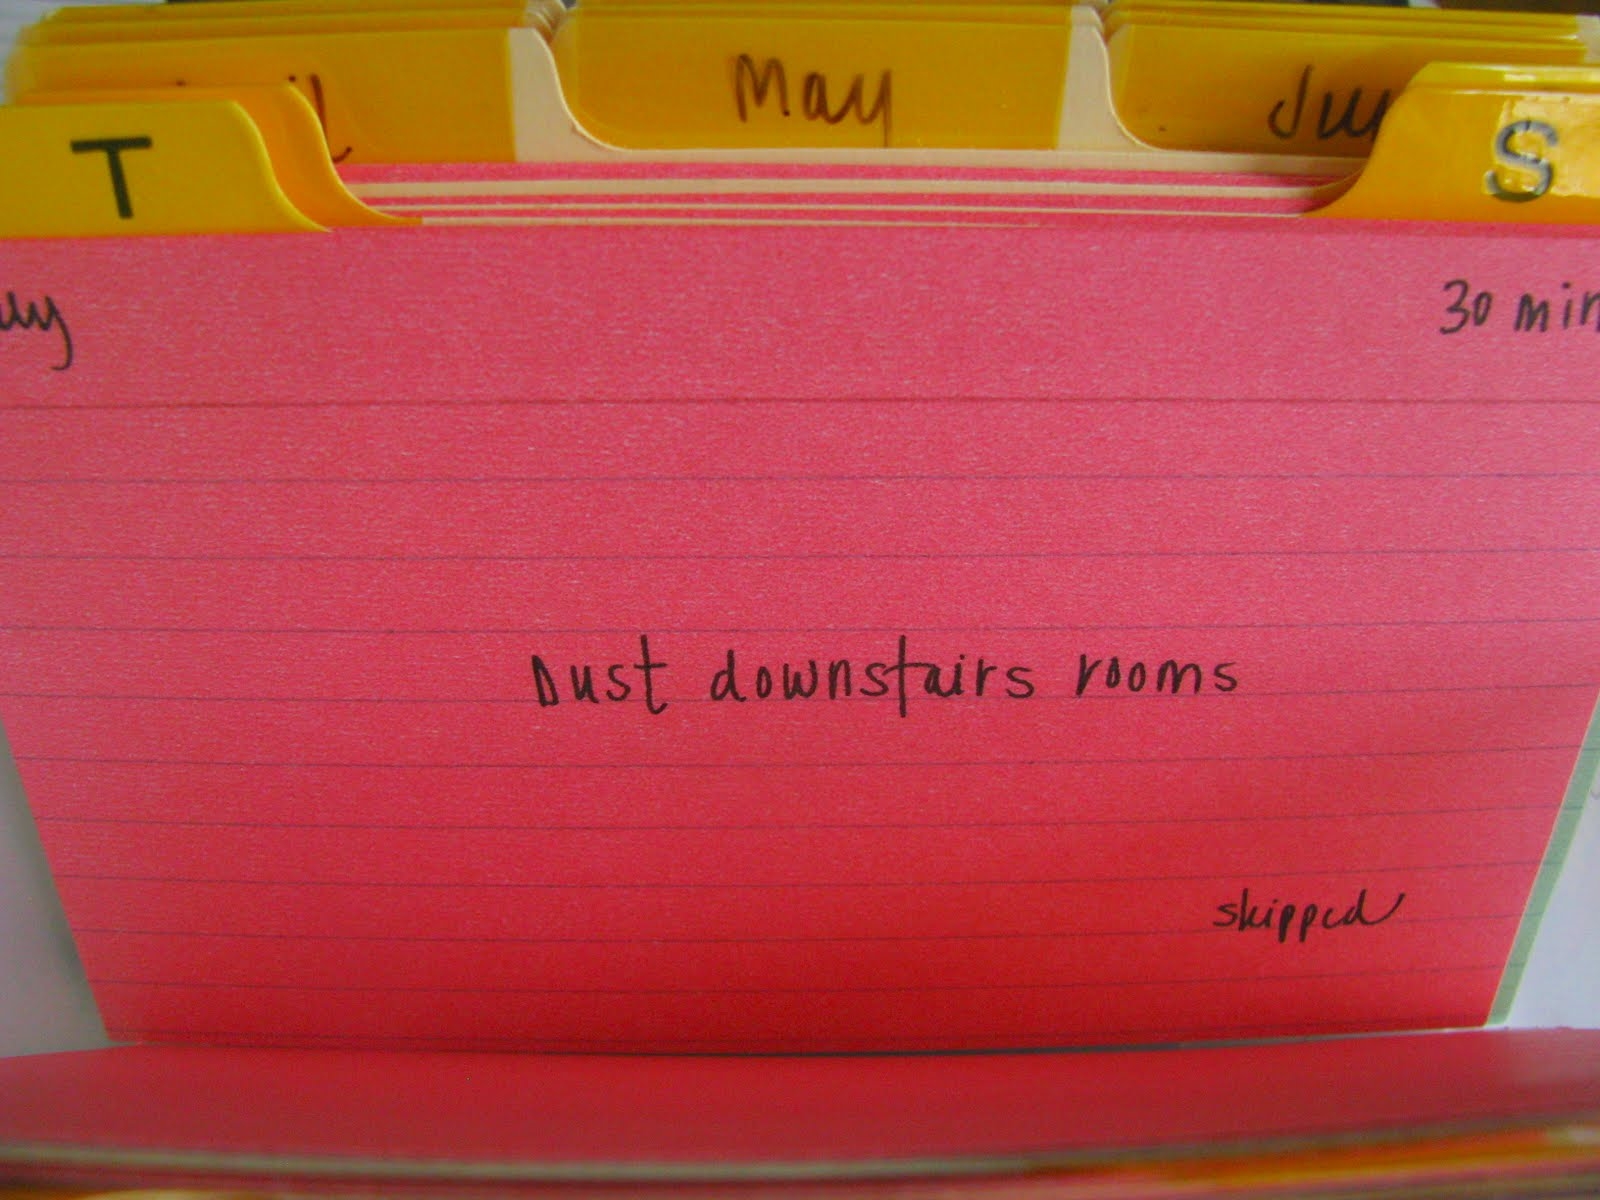 May
T
S
30 min
Dust downstairs rooms
skipped